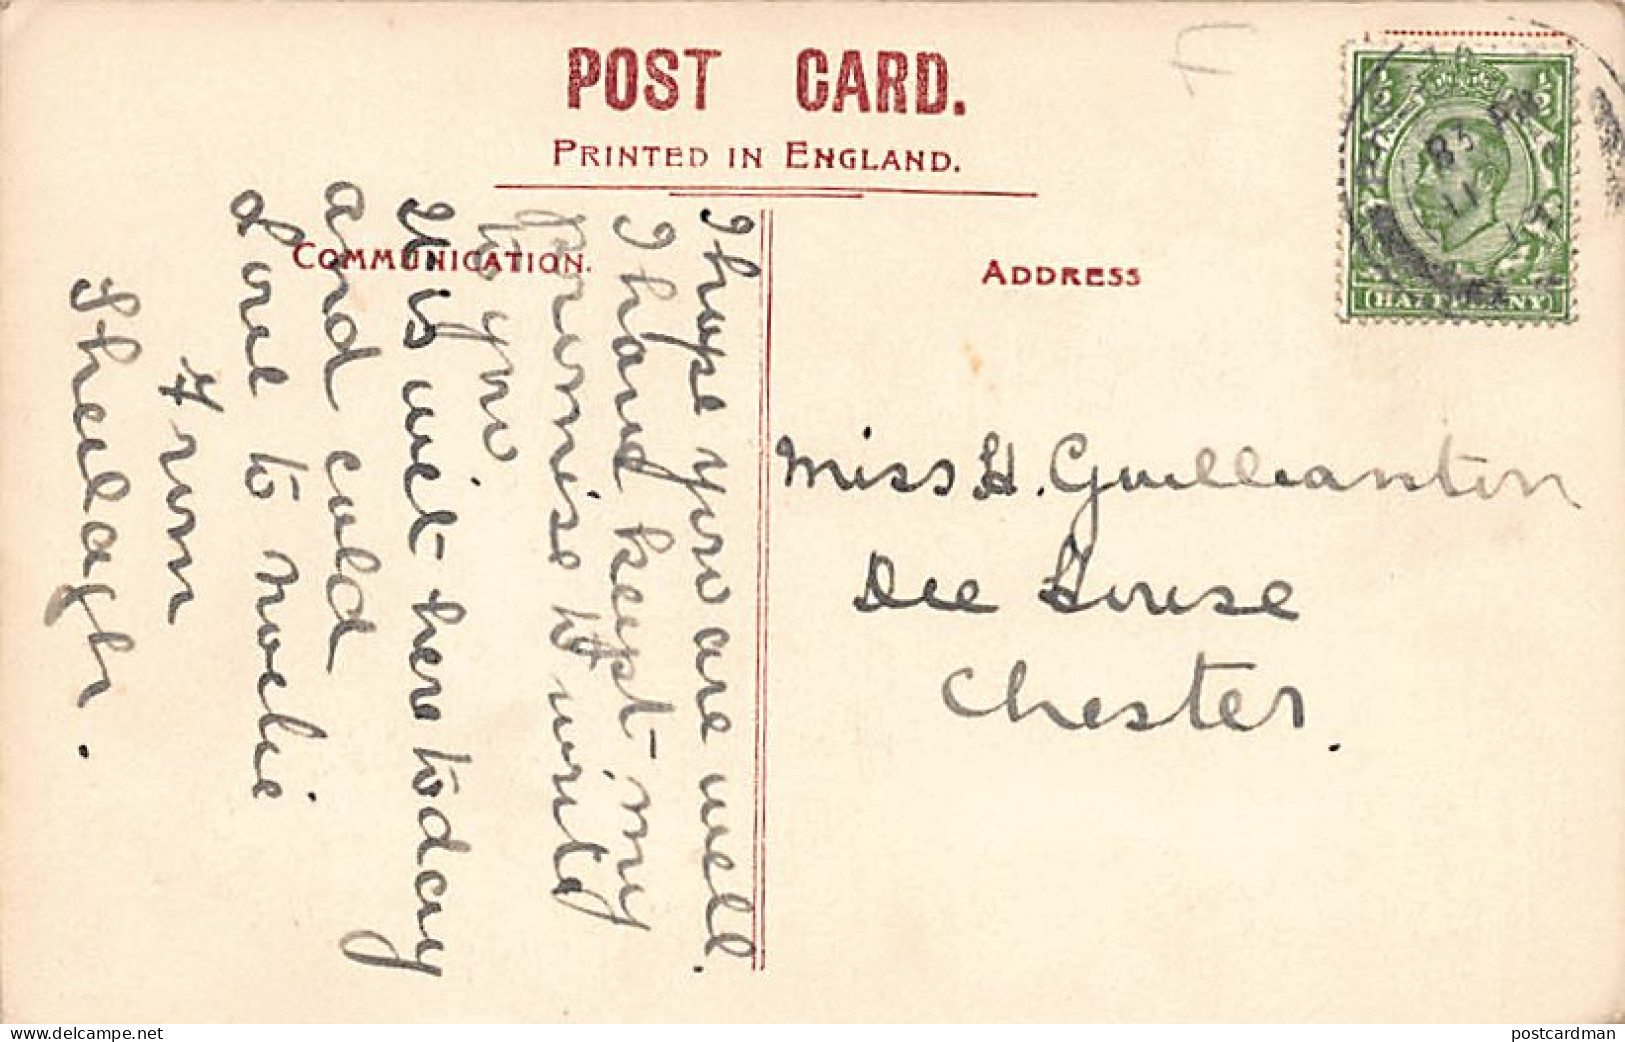 POST CARD.
PRINTED IN ENGLAND.
COMMUNICATION.
ADDRESS
I hope you are well.
I have kept my
promise to write
to you
It is wet here today
and cold
Love to
From
Sheilagh.
Miss H.
Dee House
Chester.
½ ½
HALFPENNY
83
11
delcampe.net
postcardman